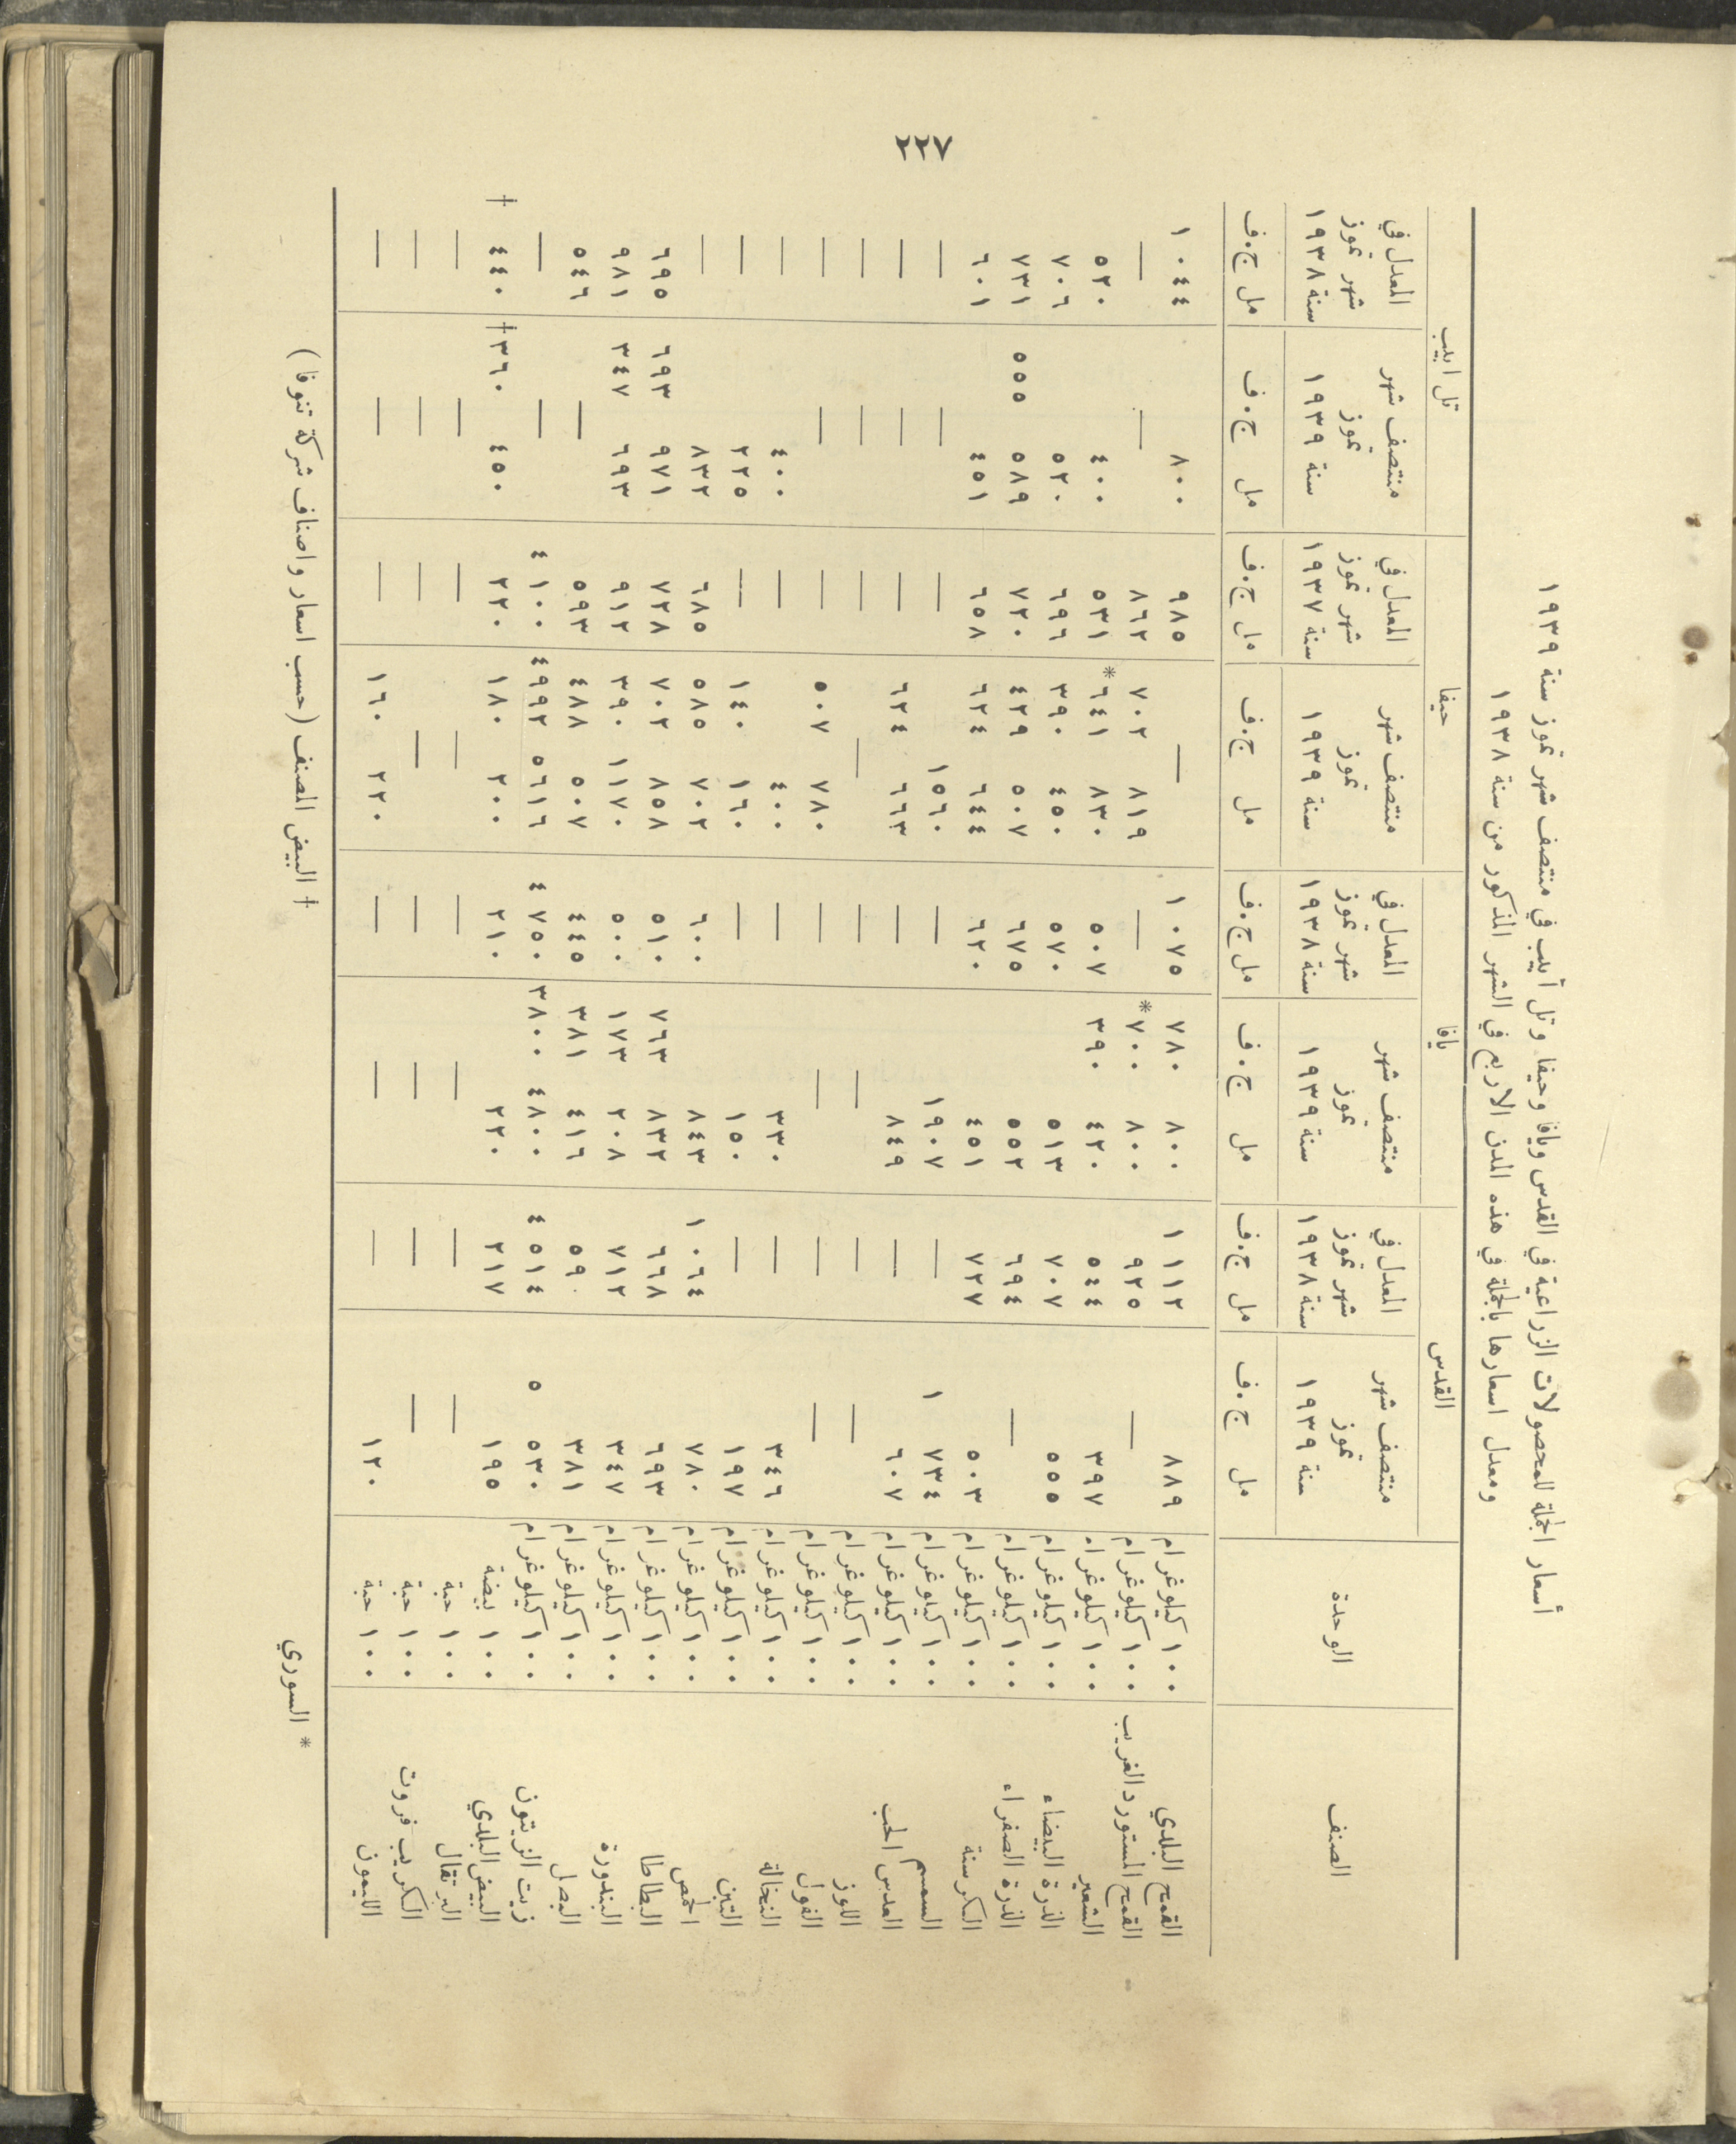 ٢٢٧
أسعار الجملة للمحصولات الزراعية في القدس ويافا وحيفا وتل أبيب في منتصف شهر تموز سنة ١٩٣٩
ومعدل اسعارها بالجملة في هذه المدن الاربع في الشهر المذكور من سنة ١٩٣٨
القدس يافا حيفا تل ابيب
الصنف الوحدة منتصف شهر تموز سنة ١٩٣٩ المعدل في شهر تموز سنة ١٩٣٨ منتصف شهر تموز سنة ١٩٣٩ المعدل في شهر تموز سنة ١٩٣٨ منتصف شهر تموز سنة ١٩٣٩ المعدل في شهر تموز سنة ١٩٣٧ منتصف شهر تموز سنة ١٩٣٩ المعدل في شهر تموز سنة ١٩٣٨
مل ج.ف مل ج.ف مل ج.ف مل ج.ف مل ج.ف مل ج.ف مل ج.ف مل ج.ف
القمح البلدي ١٠٠ كيلوغرام ٨٨٩ ١ ١١٢ ٨٠٠ ٧٨٠ ١ ٠٧٥ — ٩٨٥ ٨٠٠ ١ ٠٤٤
القمح المستورد الغريب ١٠٠ كيلوغرام — ٩٢٥ ٨٠٠ *٧٠٠ — ٨١٩ ٧٠٢ ٨٦٢ — —
الشعير ١٠٠ كيلوغرام ٣٩٧ ٥٤٤ ٤٢٠ ٣٩٠ ٥٠٧ ٨٣٠ *٦٤١ ٥٣١ ٤٠٠ ٥٣٠
الذرة البيضاء ١٠٠ كيلوغرام ٥٥٥ ٧٠٧ ٥١٣ ٥٧٠ ٤٥٠ ٣٩٠ ٦٩٦ ٥٢٠ ٧٠٦
الذرة الصفراء ١٠٠ كيلوغرام — ٦٩٤ ٥٥٢ ٦٧٥ ٥٠٧ ٤٢٩ ٧٢٠ ٥٨٩ ٥٥٥ ٧٣١
الكرسنة ١٠٠ كيلوغرام ٥٠٣ ٧٢٧ ٤٥١ ٦٢٠ ٦٤٤ ٦٢٤ ٦٥٨ ٤٥١ ٦٠١
السمسم ١٠٠ كيلوغرام ١ ٧٣٤ — ١٩٠٧ — ١٥٦٠ — — —
العدس الحب ١٠٠ كيلوغرام ٦٠٧ — ٨٤٩ — ٦٦٣ ٦٢٤ — — —
اللوز ١٠٠ كيلوغرام — — — — — — — —
الفول ١٠٠ كيلوغرام — — — — ٧٨٠ ٥٠٧ — — —
النخالة ١٠٠ كيلوغرام ٣٤٦ — ٣٣٠ — ٤٠٠ — ٤٠٠ —
التبن ١٠٠ كيلوغرام ١٩٧ — ١٥٠ — ١٦٠ ١٤٠ — ٢٢٥ —
الحمص ١٠٠ كيلوغرام ٧٨٠ ١ ٠٦٤ ٨٤٣ ٦٠٠ ٧٠٢ ٥٨٥ ٦٨٥ ٨٣٢ —
البطاطا ١٠٠ كيلوغرام ٦٩٣ ٦٦٨ ٨٣٢ ٧٦٣ ٥١٠ ٨٥٨ ٧٠٢ ٧٢٨ ٩٧١ ٦٩٣ ٦٩٥
البندورة ١٠٠ كيلوغرام ٣٤٧ ٧١٢ ٢٠٨ ١٧٣ ٥٠٠ ١١٧٠ ٣٩٠ ٩١٢ ٦٩٣ ٣٤٧ ٩٨١
البصل ١٠٠ كيلوغرام ٣٨١ ٥٩٠ ٤١٦ ٣٨١ ٤٤٥ ٥٠٧ ٤٨٨ ٥٩٣ — ٥٤٦
زيت الزيتون ١٠٠ كيلوغرام ٥ ٥٣٠ ٤ ٥١٤ ٤٨٠٠ ٣٨٠٠ ٤ ٧٥٠ ٥٦١٦ ٤٩٩٢ ٤ ١٠٠ — —
البيض البلدي ١٠٠ بيضة ١٩٥ ٢١٧ ٢٢٠ ٢١٠ ٢٠٠ ١٨٠ ٢٢٠ ٤٥٠ †٣٦٠ †٤٤٠
البرتقال ١٠٠ حبة — — — — — — — —
الكريب فروت ١٠٠ حبة — — — — — — — —
الليمون ١٠٠ حبة ١٢٠ — — — ٢٢٠ ١٦٠ — — —
* السوري † البيض المصنف (حسب اسعار واصناف شركة تنوفا)